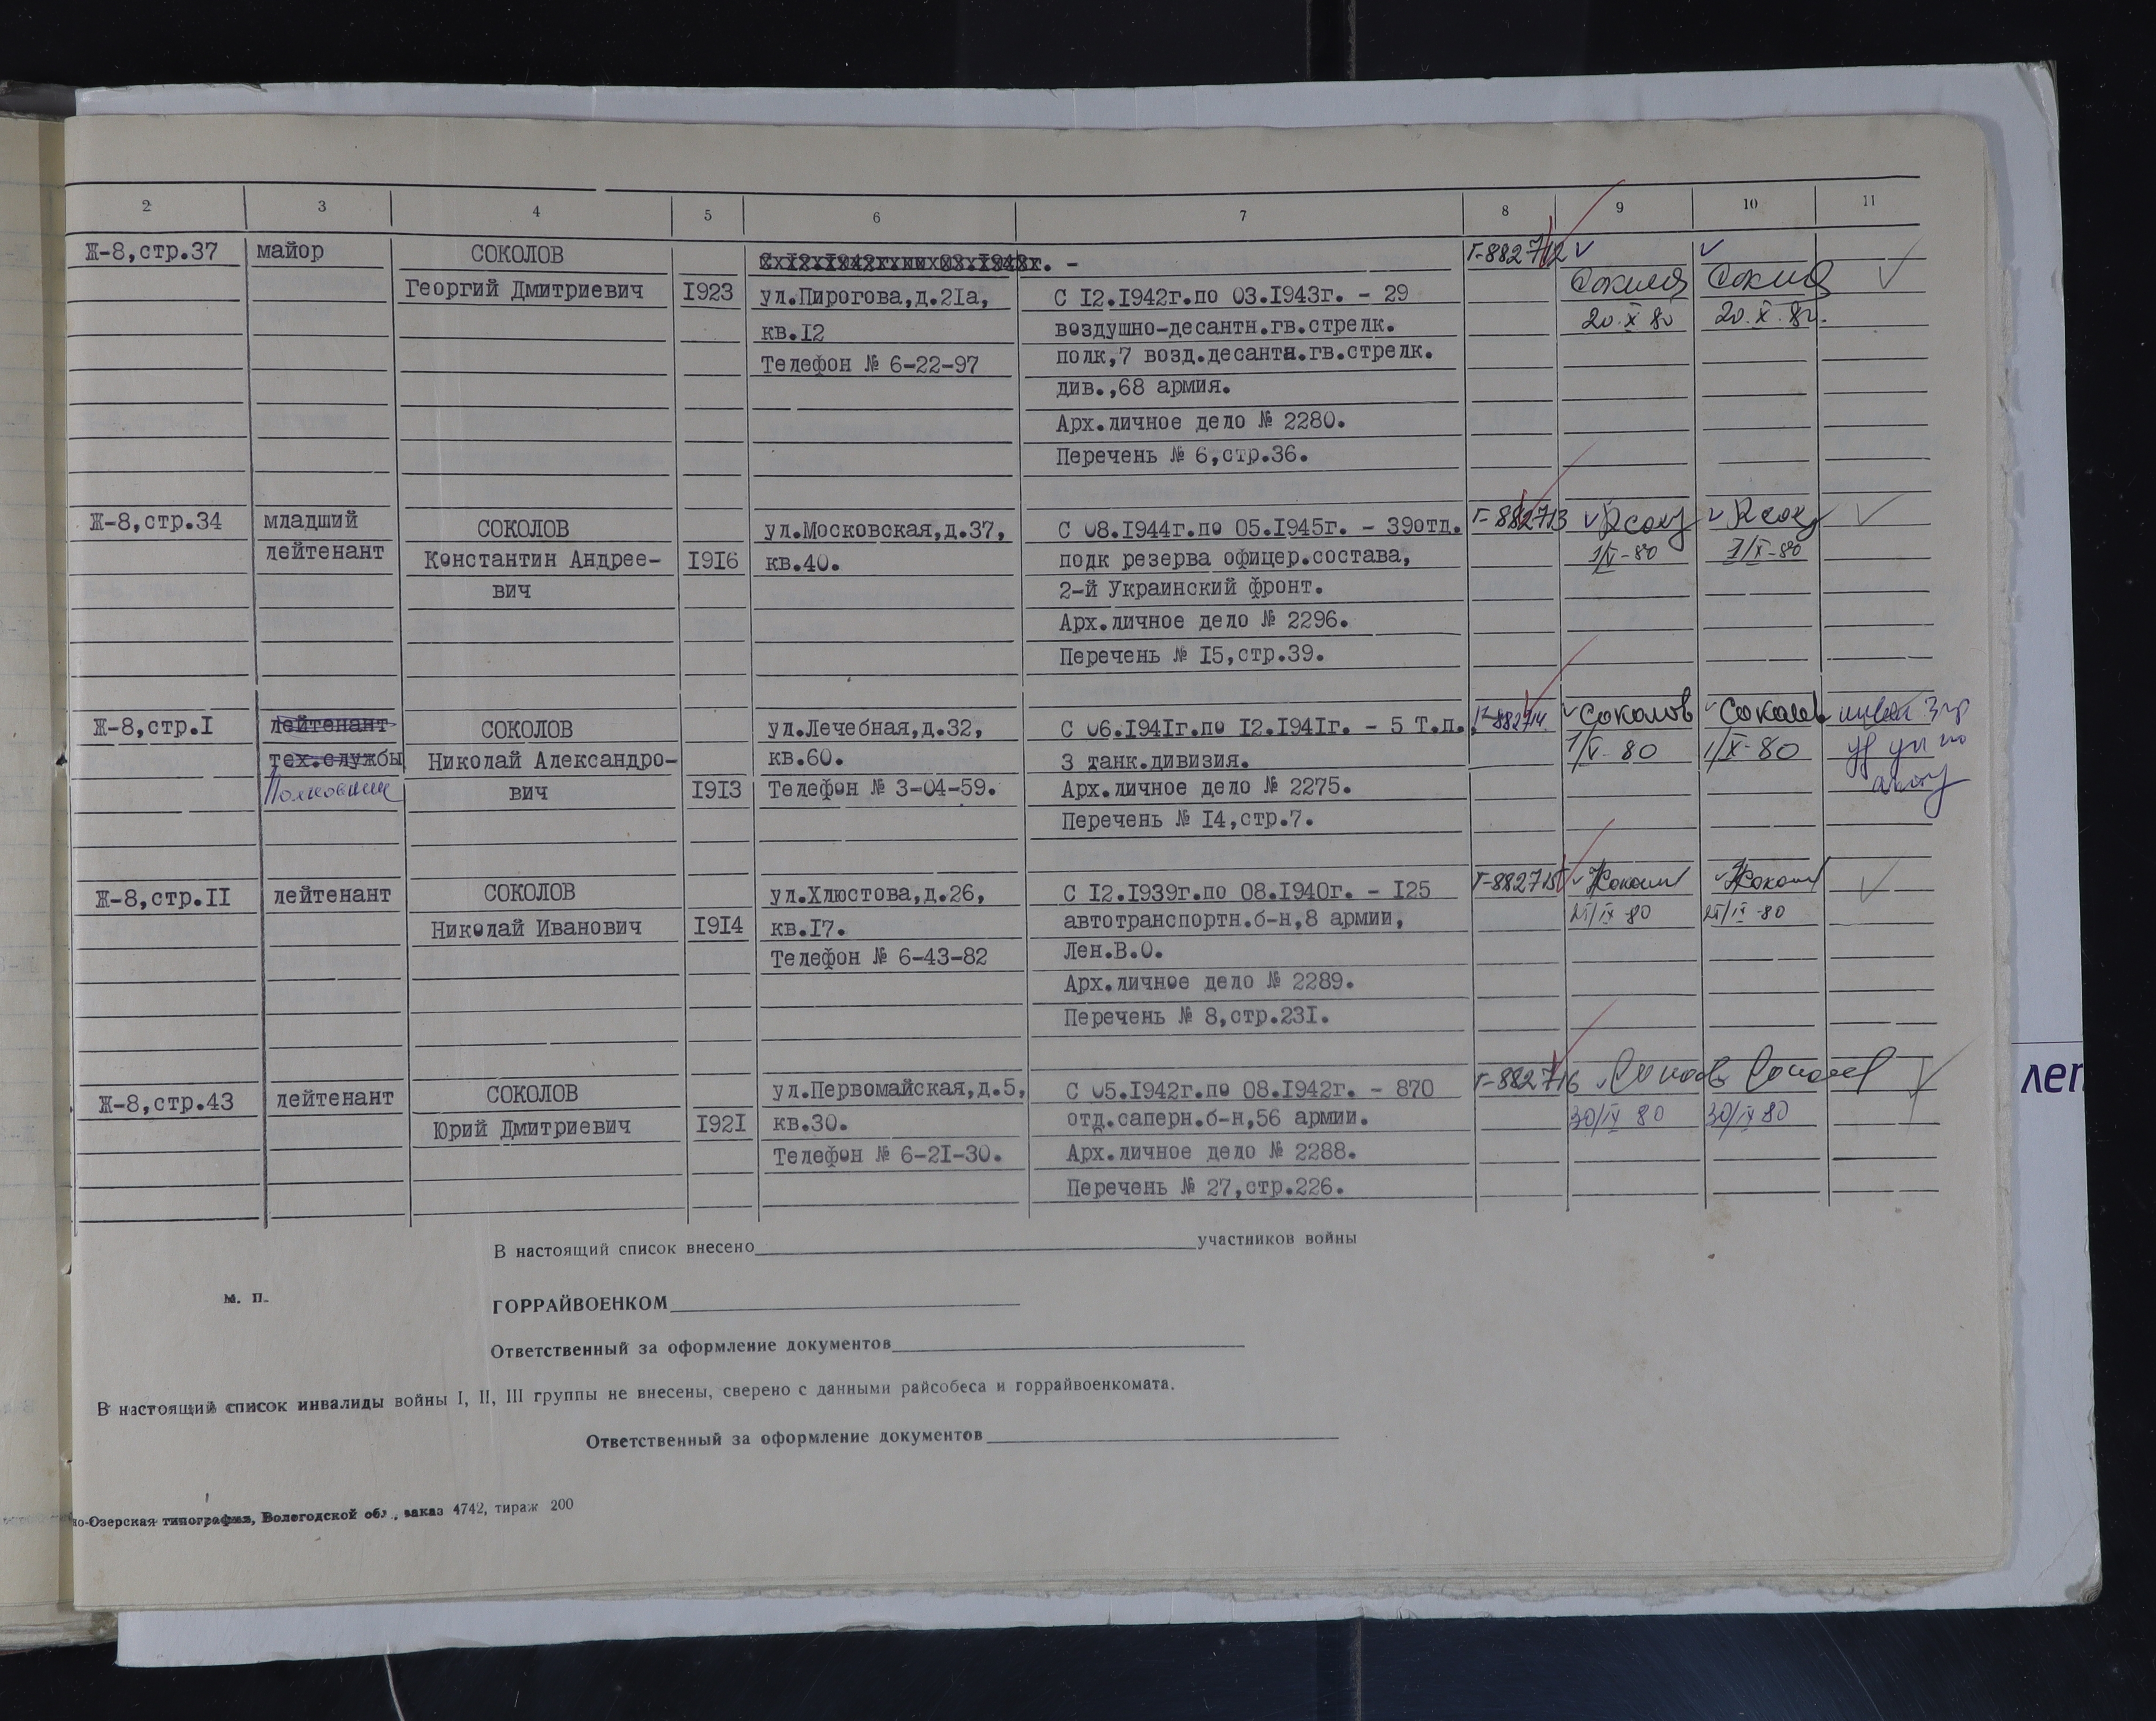 2 3 4 5 6 7 8 9 10 11
Ж-8,стр.37 майор СОКОЛОВ Г-882712
Георгий Дмитриевич I923 ул.Пирогова,д.2Iа, С I2.I942г.по 03.I943г. - 29
кв.I2 воздушно-десантн.гв.стрелк. 20.X 80 20.X.80.
Телефон № 6-22-97 полк,7 возд.десантн.гв.стрелк.
див.,68 армия.
Арх.личное дело № 2280.
Перечень № 6,стр.36.
Ж-8,стр.34 младший СОКОЛОВ ул.Московская,д.37, С 08.I944г.по 05.I945г. - 39отд. Г-882713
лейтенант Константин Андрее- I9I6 кв.40. подк резерва офицер.состава, 1/X-80 1/X-80
вич 2-й Украинский фронт.
Арх.личное дело № 2296.
Перечень № I5,стр.39.
Ж-8,стр.I лейтенант СОКОЛОВ ул.Лечебная,д.32, С 06.I94Iг.по I2.I94Iг. - 5 Т.п., Г-882714. Соколов Соколов
тех.службы Николай Александро- кв.60. 3 танк.дивизия. 1/X-80 1/X-80
Полковник вич I9I3 Телефон № 3-04-59. Арх.личное дело № 2275.
Перечень № I4,стр.7.
Ж-8,стр.II лейтенант СОКОЛОВ ул.Хлюстова,д.26, С I2.I939г.по 08.I940г. - I25 Г-882715
Николай Иванович I9I4 кв.I7. автотранспортн.б-н,8 армии,
Телефон № 6-43-82 Лен.В.О.
Арх.личное дело № 2289.
Перечень № 8,стр.23I.
Ж-8,стр.43 лейтенант СОКОЛОВ ул.Первомайская,д.5, С 05.I942г.по 08.I942г. - 870 Г-882716
Юрий Дмитриевич I92I кв.30. отд.саперн.б-н,56 армии. 30/IX 80 30/IX 80
Телефон № 6-2I-30. Арх.личное дело № 2288.
Перечень № 27,стр.226.
В настоящий список внесено участников войны
м. п.
ГОРРАЙВОЕНКОМ
Ответственный за оформление документов
В настоящий список инвалиды войны I, II, III группы не внесены, сверено с данными райсобеса и горрайвоенкомата.
Ответственный за оформление документов
но-Озерская типография, Вологодской обл., заказ 4742, тираж 200